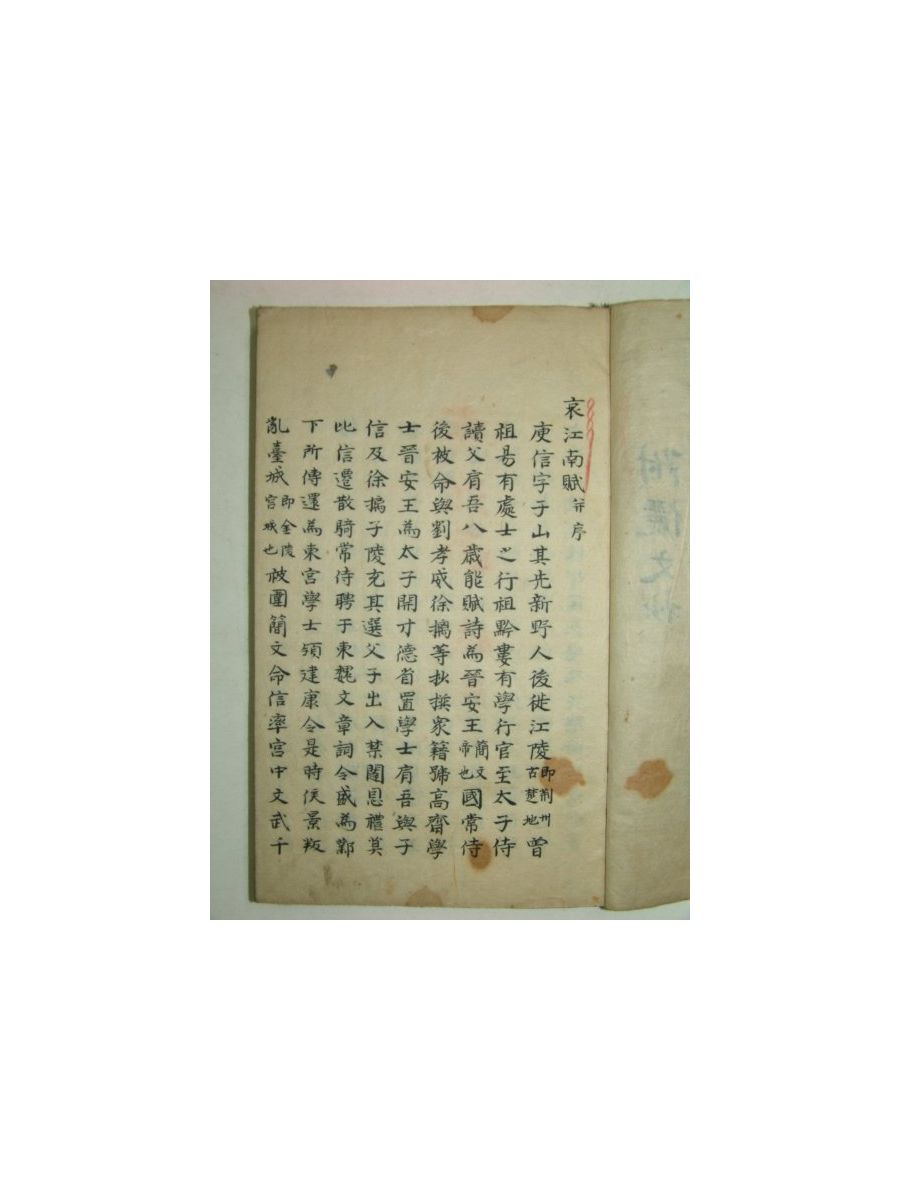 哀江南賦 并序
庾信字子山其先新野人後徙江陵 即荆州古楚地 曾
祖昜有處士之行祖黔婁有學行官至太子侍
讀父肩吾八歲能賦詩為晉安王 簡文帝也 國常侍
後被命與劉孝威徐摛等抄撰衆籍號高齋學
士晉安王為太子開文德省置學士肩吾與子
信及徐摛子陵充其選父子出入禁闥恩禮莫
比信遷散騎常侍聘于東魏文章詞令盛為鄴
下所傳還為東宮學士領建康令是時侯景叛
亂臺城 即金陵宮城也 被圍簡文命信率宮中文武千